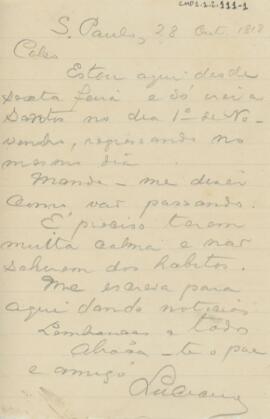 CMD1.1.2.111-1
S. Paulo, 28 Out. 1918
Estou aqui desde
sexta feira e só irei a
Santos no dia 1º de No-
vembro, regressando no
mesmo dia.
Manda-me dizer
como vae passando.
É preciso terem
muita calma e não
sahirem dos habitos.
Me escreva para
aqui dando noticias
Lembranças a todo
Abraça-te o pae
e amigo
Luciano